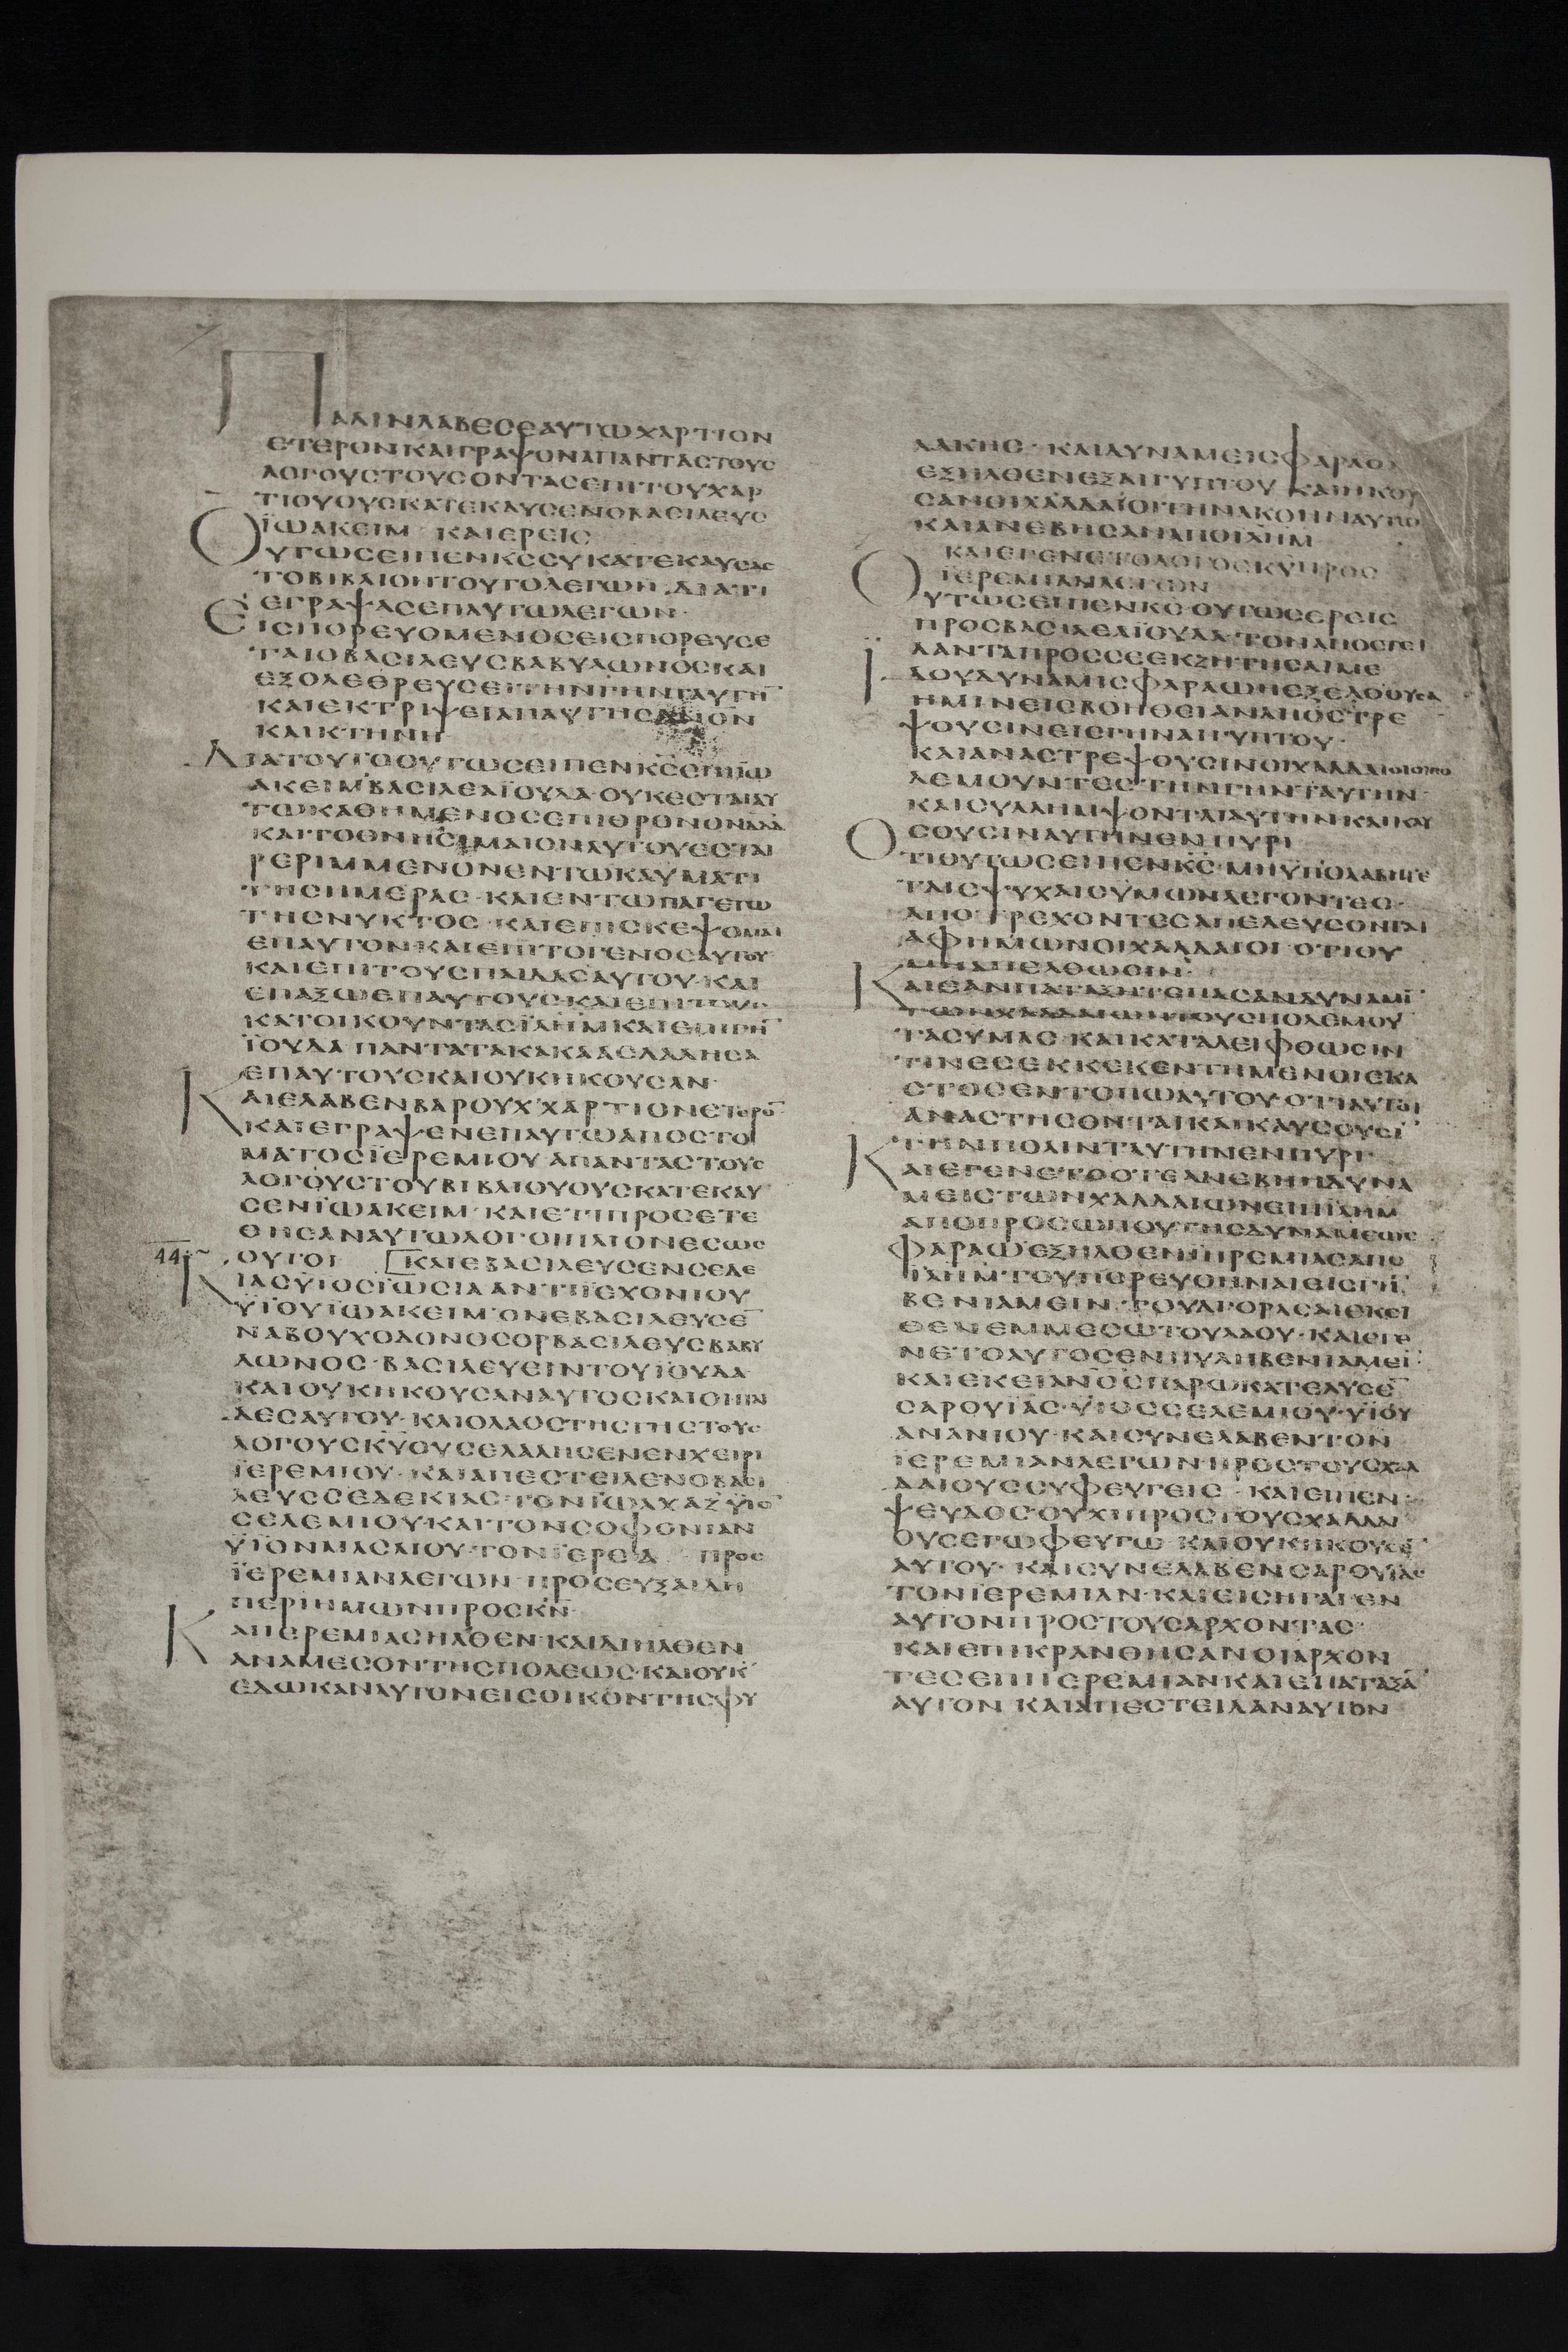 ΠΑΛΙΝΛΑΒΕΣΕΑΥΤΩΧΑΡΤΙΟΝ
ΕΤΕΡΟΝΚΑΙΓΡΑΨΟΝΑΠΑΝΤΑΣΤΟΥΣ
ΛΟΓΟΥΣΤΟΥΣΟΝΤΑΣΕΠΙΤΟΥΧΑΡ
ΤΙΟΥΟΥΣΚΑΤΕΚΑΥΣΕΝΟΒΑΣΙΛΕΥΣ
ΪΩΑΚΕΙΜ ΚΑΙΕΡΕΙΣ
ΟΥΤΩΣΕΙΠΕΝΚΣΣΥΚΑΤΕΚΑΥΣΑΣ
ΤΟΒΙΒΛΙΟΝΤΟΥΤΟΛΕΓΩΝ·ΔΙΑΤΙ
ΕΓΡΑΨΑΣΕΠΑΥΤΩΛΕΓΩΝ·
ΕΙΣΠΟΡΕΥΟΜΕΝΟΣΕΙΣΠΟΡΕΥΣΕ
ΤΑΙΟΒΑΣΙΛΕΥΣΒΑΒΥΛΩΝΟΣΚΑΙ
ΕΞΟΛΕΘΡΕΥΣΕΙΤΗΝΓΗΝΤΑΥΤΗ̅
ΚΑΙΕΚΤΡΙΨΕΙΑΠΑΥΤΗΣΑΝΟΝ
ΚΑΙΚΤΗΝΗ
ΔΙΑΤΟΥΤΟΟΥΤΩΣΕΙΠΕΝΚΣΕΠΙΪΩ
ΑΚΕΙΜΒΑΣΙΛΕΑΪΟΥΔΑ·ΟΥΚΕΣΤΑΙΑΥ
ΤΩΚΑΘΗΜΕΝΟΣΕΠΙΘΡΟΝΟΝΔΑΔ
ΚΑΙΤΟΘΝΗΣΙΜΑΙΟΝΑΥΤΟΥΕΣΤΑΙ
ΡΕΡΙΜΜΕΝΟΝΕΝΤΩΚΑΥΜΑΤΙ
ΤΗΣΗΜΕΡΑΣ·ΚΑΙΕΝΤΩΠΑΓΕΤΩ
ΤΗΣΝΥΚΤΟΣ·ΚΑΙΕΠΙΣΚΕΨΟΜΑΙ
ΕΠΑΥΤΟΝ·ΚΑΙΕΠΙΤΟΓΕΝΟΣΑΥΤΟΥ
ΚΑΙΕΠΙΤΟΥΣΠΑΙΔΑΣΑΥΤΟΥ·ΚΑΙ
ΕΠΑΞΩΕΠΑΥΤΟΥΣ·ΚΑΙΕΠΙΤΟΥΣ
ΚΑΤΟΙΚΟΥΝΤΑΣΪΛΗΜΚΑΙΕΠΙΓΗ̅
ΪΟΥΔΑ ΠΑΝΤΑΤΑΚΑΚΑΑΕΛΑΛΗΣΑ
ΕΠΑΥΤΟΥΣΚΑΙΟΥΚΗΚΟΥΣΑΝ·
ΚΑΙΕΛΑΒΕΝΒΑΡΟΥΧΧΑΡΤΙΟΝΕΤΕΡΟ̅
ΚΑΙΕΓΡΑΨΕΝΕΠΑΥΤΩΑΠΟΣΤΟ
ΜΑΤΟΣΪΕΡΕΜΙΟΥΑΠΑΝΤΑΣΤΟΥΣ
ΛΟΓΟΥΣΤΟΥΒΙΒΛΙΟΥΟΥΣΚΑΤΕΚΑΥ
ΣΕΝΪΩΑΚΕΙΜ·ΚΑΙΕΤΙΠΡΟΣΕΤΕ
ΘΗΣΑΝΑΥΤΩΛΟΓΟΙΠΛΙΟΝΕΣΩΣ
44 ΟΥΤΟΙ [ΚΑΙΕΒΑΣΙΛΕΥΣΕΝΣΕΔΕ
ΚΙΑΣΥΙΟΣΪΩΣΙΑΑΝΤΙΪΕΧΟΝΙΟΥ
ΥΪΟΥΪΩΑΚΕΙΜ·ΟΝΕΒΑΣΙΛΕΥΣΕ̅
ΝΑΒΟΥΧΟΔΟΝΟΣΟΡΒΑΣΙΛΕΥΣΒΑΒΥ
ΛΩΝΟΣ·ΒΑΣΙΛΕΥΕΙΝΤΟΥΪΟΥΔΑ
ΚΑΙΟΥΚΗΚΟΥΣΑΝΑΥΤΟΣΚΑΙΟΙΠΑΙ
ΔΕΣΑΥΤΟΥ·ΚΑΙΟΛΑΟΣΤΗΣΓΗΣΤΟΥΣ
ΛΟΓΟΥΣΚΥΟΥΣΕΛΑΛΗΣΕΝΕΝΧΕΙΡΙ
ΪΕΡΕΜΙΟΥ·ΚΑΙΑΠΕΣΤΕΙΛΕΝΟΒΑΣΙ
ΛΕΥΣΣΕΔΕΚΙΑΣ·ΤΟΝΪΩΑΧΑΖΥΪΟ̅
ΣΕΛΕΜΙΟΥ·ΚΑΙΤΟΝΣΟΦΟΝΙΑΝ
ΥΪΟΝΜΑΣΑΙΟΥ·ΤΟΝΪΕΡΕΑ ΠΡΟΣ
ΪΕΡΕΜΙΑΝΛΕΓΩΝ·ΠΡΟΣΕΥΞΑΙΔΗ
ΠΕΡΙΗΜΩΝΠΡΟΣΚΝ
ΚΑΙΪΕΡΕΜΙΑΣΗΛΘΕΝ·ΚΑΙΔΙΗΛΘΕΝ
ΑΝΑΜΕΣΟΝΤΗΣΠΟΛΕΩΣ·ΚΑΙΟΥΚ
ΕΔΩΚΑΝΑΥΤΟΝΕΙΣΟΙΚΟΝΤΗΣΦΥ
ΛΑΚΗΣ·ΚΑΙΔΥΝΑΜΕΙΣΦΑΡΑΩ
ΕΞΗΛΘΕΝΕΞΑΙΓΥΠΤΟΥ ΚΑΙΗΚΟΥ
ΣΑΝΟΙΧΑΛΔΑΙΟΙΤΗΝΑΚΟΗΝΑΥΤΩ
ΚΑΙΑΝΕΒΗΣΑΝΑΠΟΪΛΗΜ
ΚΑΙΕΓΕΝΕΤΟΛΟΓΟΣΚΥΠΡΟΣ
ΪΕΡΕΜΙΑΝΛΕΓΩΝ
ΟΥΤΩΣΕΙΠΕΝΚΣ·ΟΥΤΩΣΕΡΕΙΣ
ΠΡΟΣΒΑΣΙΛΕΑΪΟΥΔΑ·ΤΟΝΑΠΟΣΤΕΙ
ΛΑΝΤΑΠΡΟΣΣΕΕΚΖΗΤΗΣΑΙΜΕ
ΪΔΟΥΔΥΝΑΜΙΣΦΑΡΑΩΗΕΞΕΛΘΟΥΣΑ
ΗΜΙΝΕΙΣΒΟΗΘΕΙΑΝΑΠΟΣΤΡΕ
ΨΟΥΣΙΝΕΙΣΓΗΝΑΙΓΥΠΤΟΥ·
ΚΑΙΑΝΑΣΤΡΕΨΟΥΣΙΝΟΙΧΑΛΔΑΙΟΙΟΙΠΟ
ΛΕΜΟΥΝΤΕΣΤΗΝΓΗΝΤΑΥΤΗΝ·
ΚΑΙΣΥΛΛΗΜΨΟΝΤΑΙΑΥΤΗΝΚΑΙΚΑΥ
ΣΟΥΣΙΝΑΥΤΗΝΕΝΠΥΡΙ
ΟΤΙΟΥΤΩΣΕΙΠΕΝΚΣ·ΜΗΥΠΟΛΑΒΗΤΕ
ΤΑΙΣΨΥΧΑΙΣΥΜΩΝΛΕΓΟΝΤΕΣ·
ΑΠΟΤΡΕΧΟΝΤΕΣΑΠΕΛΕΥΣΟΝΤΑΙ
ΑΦΗΜΩΝΟΙΧΑΛΔΑΙΟΙ·ΟΤΙΟΥ
ΜΗΑΠΕΛΘΩΣΙΝ·
ΚΑΙΕΑΝΠΑΤΑΞΗΤΕΠΑΣΑΝΔΥΝΑΜΙ̅
ΤΩΝΧΑΛΔΑΙΩΝΤΟΥΣΠΟΛΕΜΟΥ
ΤΑΣΥΜΑΣ·ΚΑΙΚΑΤΑΛΕΙΦΘΩΣΙΝ
ΤΙΝΕΣΕΚΚΕΚΕΝΤΗΜΕΝΟΙΕΚΑ
ΣΤΟΣΕΝΤΟΠΩΑΥΤΟΥ·ΟΤΙΑΥΤΟΙ
ΑΝΑΣΤΗΣΟΝΤΑΙΚΑΙΚΑΥΣΟΥΣΙ̅
ΤΗΝΠΟΛΙΝΤΑΥΤΗΝΕΝΠΥΡΙ·
ΚΑΙΕΓΕΝΕΤΟΟΤΕΑΝΕΒΗΗΔΥΝΑ
ΜΕΙΣΤΩΝΧΑΛΔΑΙΩΝΕΠΙΪΛΗΜ
ΑΠΟΠΡΟΣΩΠΟΥΤΗΣΔΥΝΑΜΕΩΣ
ΦΑΡΑΩΕΞΗΛΘΕΝΪΕΡΕΜΙΑΣΑΠΟ
ΪΛΗΜΤΟΥΠΟΡΕΥΘΗΝΑΙΕΙΣΓΗ̅
ΒΕΝΙΑΜΕΙΝ·ΤΟΥΑΓΟΡΑΣΑΙΕΚΕΙ
ΘΕΝΕΜΜΕΣΩΤΟΥΛΑΟΥ·ΚΑΙΕΓΕ
ΝΕΤΟΑΥΤΟΣΕΝΠΥΛΗΒΕΝΙΑΜΕΙ̅
ΚΑΙΕΚΕΙΑΝΟΣΠΑΡΩΚΑΤΕΛΥΣΕ̅
ΣΑΡΟΥΪΑΣ·ΥΪΟΣΣΕΛΕΜΙΟΥ·ΥΪΟΥ
ΑΝΑΝΙΟΥ·ΚΑΙΣΥΝΕΛΑΒΕΝΤΟΝ
ΪΕΡΕΜΙΑΝΛΕΓΩΝ·ΠΡΟΣΤΟΥΣΧΑΛ
ΔΑΙΟΥΣΣΥΦΕΥΓΕΙΣ·ΚΑΙΕΙΠΕΝ·
ΨΕΥΔΟΣ·ΟΥΧΙΠΡΟΣΤΟΥΣΧΑΛΔΑΙ
ΟΥΣΕΓΩΦΕΥΓΩ ΚΑΙΟΥΚΗΚΟΥΣΕ̅
ΑΥΤΟΥ·ΚΑΙΣΥΝΕΛΑΒΕΝΣΑΡΟΥΪΑΣ
ΤΟΝΪΕΡΕΜΙΑΝ·ΚΑΙΕΙΣΗΓΑΓΕΝ
ΑΥΤΟΝΠΡΟΣΤΟΥΣΑΡΧΟΝΤΑΣ·
ΚΑΙΕΠΙΚΡΑΝΘΗΣΑΝΟΙΑΡΧΟΝ
ΤΕΣΕΠΙΪΕΡΕΜΙΑΝΚΑΙΕΠΑΤΑΞΑ̅
ΑΥΤΟΝ ΚΑΙΑΠΕΣΤΕΙΛΑΝΑΥΤΟΝ